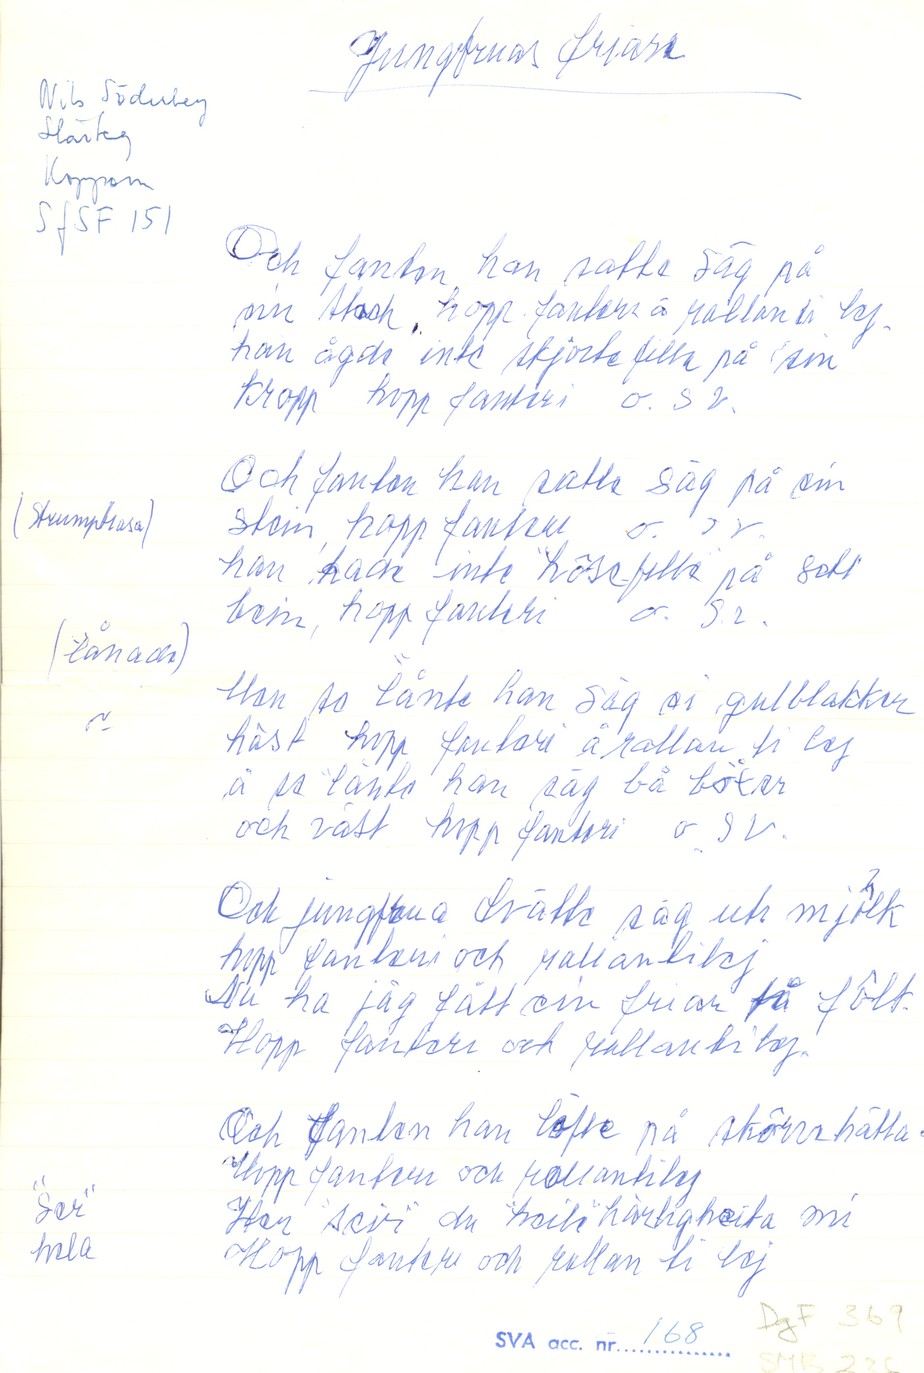 Jungfruns friare
Nils Söderberg
Koppom
SfSF 151
Och fanten han satte säg på
sin stock, hopp fanteri å rallan ti lej.
han ägde inte skjortefilla på sin
kropp hopp fanteri o. s v.
Och fanten han satte säg på ein
(strumptrasa)
stein, hopp fanteri o. s v.
han hade inte "hosefilla" på sett
bein, hopp fanteri o. s.v.
(lånade)
Men så "lånte han säg ei gulblakker
häst hopp fanteri å rallan ti lej
å så lånte han säg bå böxer
och väst hopp fanteri o s v.
Och jungfrua tvätte säg uti mjölk
hopp fanteri och rallantilej
Nu ha jäg fått ein friar få fôlk.
Hopp fanteri och rallantilej.
Och fanten han löfte på skörrthätta
Hopp fanteri och rallantilej
"Ser"
Her "seir" du "heile" härligheita mi
hela
Hopp fanteri och rallan ti lej
SVA acc. nr. 168
DgF 369
SMB